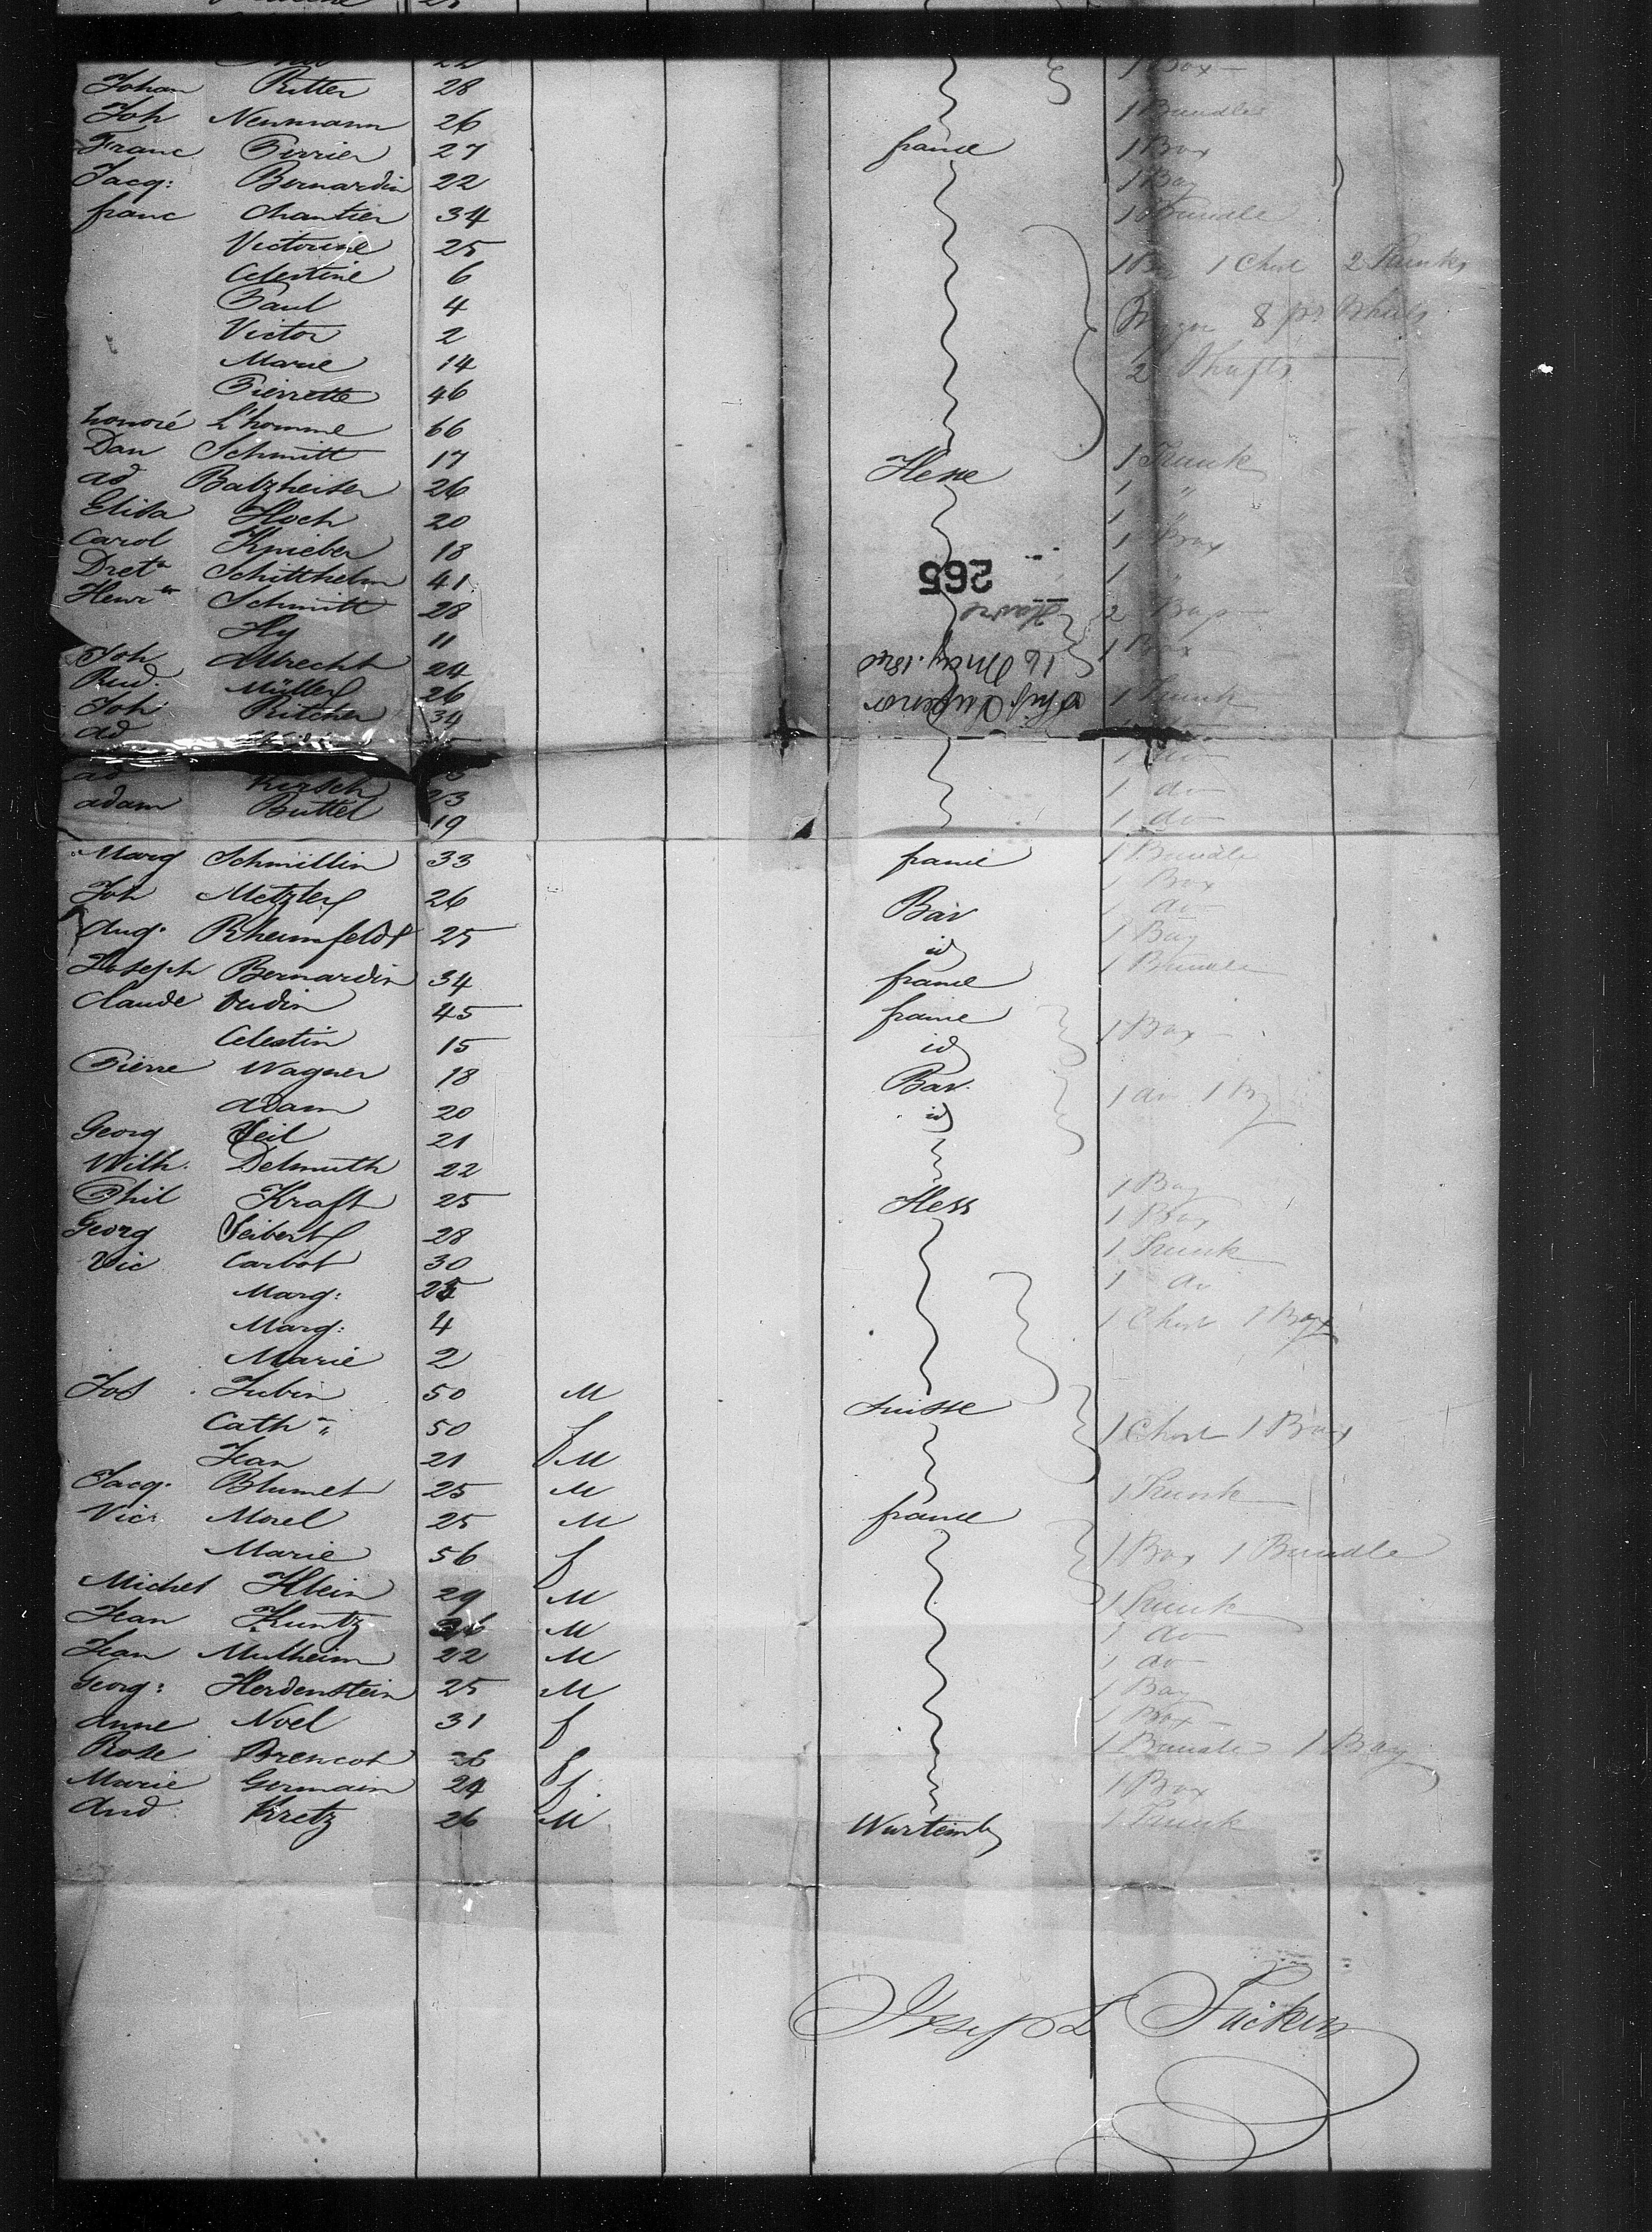 22 1 Box
Johan Ritter 28
Joh Neumann 26 1 Bundle
Franc Perrier 27 france 1 Box
Jacq: Bernardin 22 1 Bag
franc Chantier 34 1 Bundle
Victorine 25
Celestine 6 1 Chest 2 Trunks
Paul 4
Victor 2 8 pr Wheels
Marie 14 2 Shafts
Pierrette 46
honoré L'homme 66
Dan Schmitt 17 Hesse 1 Trunk
ad Balzheiser 26 1 "
Elisa Hoch 20 1 "
Carol Knieber 18 1 Box
Dreta Schitthelm 41 1 "
265
Henr Schmitt 28 2 Bags
Havre
Hy 11
Joh Albrecht 24 1 Box
16 May. 1840
Rud. Müller 26 1 Trunk
Ship Duperior
Joh Ritcher 34
ad
1 do
ad Kirsch 23 1 do
adam Buttel 19 1 do
Marg Schmillin 33 france 1 Bundle
1 Box
Joh Metzler 26 Bav 1 do
Aug. Rheimfeldt 25 id 1 Bag
Joseph Bernardin 34 france 1 Bundle
Claude Oudin 45 france 1 Box
Celestin 15 id
Pierre Wagner 18 Bav. 1 do 1 Bag
adam 20 id
Georg Veil 21
Wilh. Delmuth 22 1 Bag
Phil Kraft 25 Hess 1 Box
Georg Seibert 28 1 Trunk
Vic Carbot 30 1 do
Marg: 25
Marg: 4 1 Chest 1 Box
Marie 2
Jos Jubin 50 M Suisse
Cath " 50 f 1 Chest 1 Box
Jean 21 M
Jacq. Blumet 25 M 1 Trunk
Vic. Morel 25 M france
Marie 56 f 1 Box 1 Bundle
Michel Klein 29 M 1 Trunk
Jean Kuntz M 1 do
Jean Mulheim 22 M 1 do
Georg: Herdenstein 25 M 1 Bag
Anne Noel 31 f 1 Box
Rose Brencot 26 f 1 Bundle 1 Bag
Marie Germain 24 f 1 Box
And Kretz 26 M Wurtemb 1 Trunk
Joseph Tucker